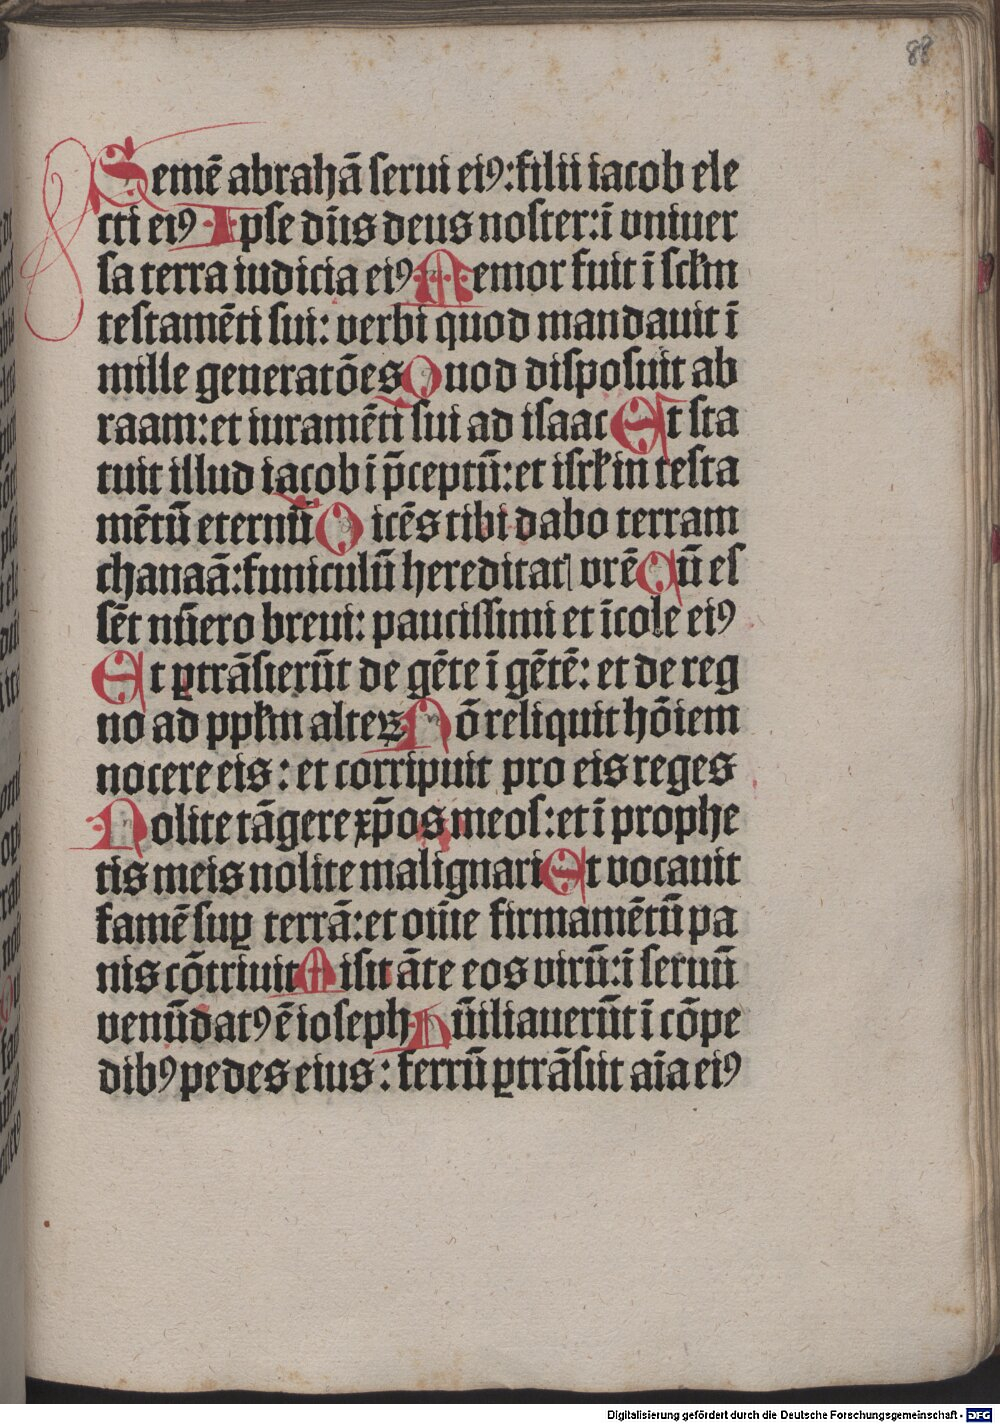 88
Semē abrahā serui eiꝰ: filii iacob ele
cti eiꝰ Ipse dn̄s deus noster: ī vniuer
sa terra iudicia eiꝰ Memor fuit ī sclm̄
testamēti sui: verbi quod mandauit ī
mille generatōes Quod disposuit ab
raam: et iuramēti sui ad isaac Et sta
tuit illud iacob ī p̄ceptū: et isrl̄ in testa
mētū eternū Dicēs tibi dabo terram
chanaā: funiculū hereditat vrē Cū es
sēt nūero breui: paucissimi et īcole eiꝰ
Et ꝑtrāsierūt de gēte ī gētē: et de reg
no ad ppl̄m alteꝝ Nō reliquit hōiem
nocere eis: et corripuit pro eis reges
Nolite tāgere xp̄os meos: et ī prophe
tis meis nolite malignari Et vocauit
famē suꝑ terrā: et om̄e firmamētū pa
nis cōtriuit Misit āte eos virū: ī seruū
venūdatꝰ ē ioseph Hūiliauerūt ī cōpe
dibꝰ pedes eius: ferrū ꝑtrāsiit aīa eiꝰ
Digitalisierung gefördert durch die Deutsche Forschungsgemeinschaft - DFG